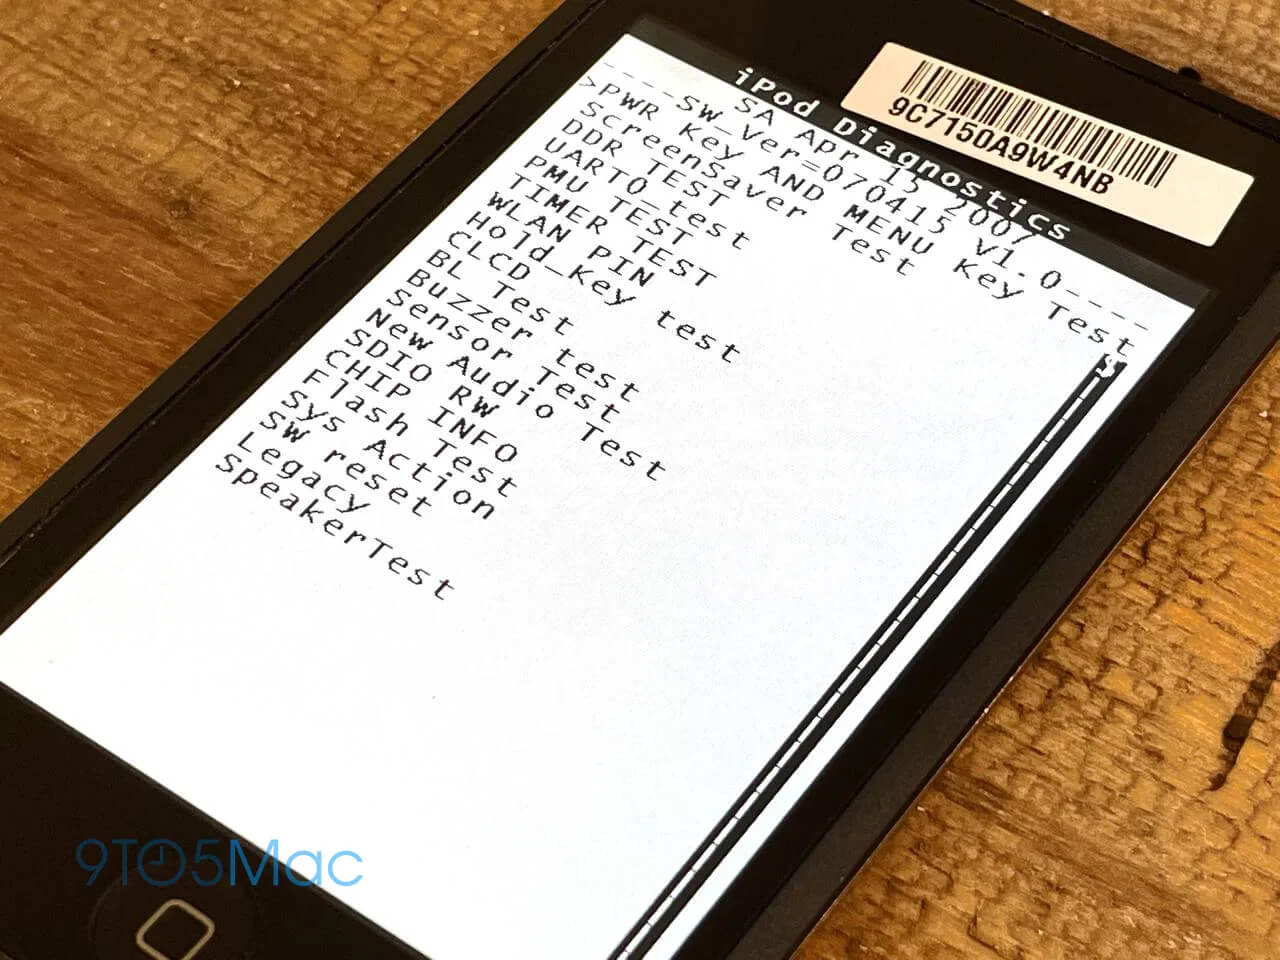 iPod Diagnostics
SA Apr 15 2007
----SW_Ver=070415 v1.0----
>PWR Key AND MENU Key Test
ScreenSaver Test
DDR TEST
UART0_test
PMU TEST
TIMER TEST
WLAN PIN
Hold_Key test
CLCD
BL Test
Buzzer test
Sensor Test
New Audio Test
SDIO RW
CHIP INFO
Flash Test
Sys Action
SW reset
Legacy
SpeakerTest
S
9C7150A9W4NB
9TO5Mac